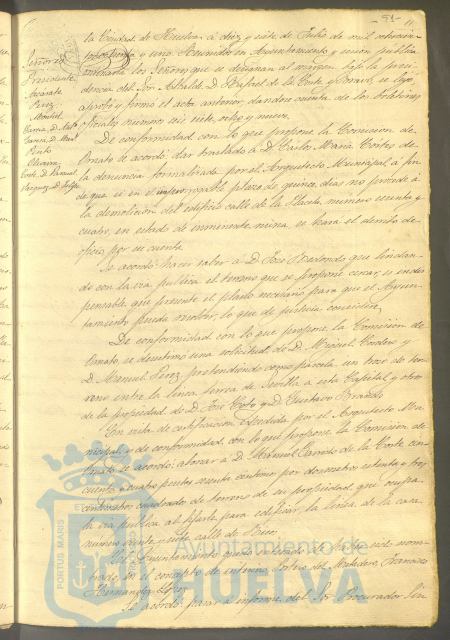 51
Señores
Presidente
Azcárate
Perez
Montiel
Garcia, D. Anto
Garcia, D. Man
Pinto
Oliveira
Corte, D. Manuel
Vazquez, D. Felipe
la Ciudad de Huelva á diez y siete de Julio de mil ochocien
y uno. Reunidos en Ayuntamiento y sesion publica
ordinaria los Señores que se designan al margen bajo la presi
dencia del Sor. Alcalde D. Rafael de la Corte y Bravo, se leyó,
aprobó y firmó el acta anterior, dandose cuenta de los boletines
oficiales numeros seis, siete, ocho y nueve.
De conformidad con lo que propone la Comision de
Ornato se acordó dar traslado á D. Carlos Maria Cortes de
la denuncia formalizada por el Arquitecto Municipal, á fin
de que si en el improrrogable plazo de quince dias no procede á
la demolicion del edificio calle de la Placeta, numero
cuatro, en estado de inminente ruina, se hará el derribo de
oficio por su cuenta.
Se acordó hacer saber á D. José Redondo que lindan-
do con la via publica el terreno que se propone cercar, es indis
pensable que presente el plano necesario para que el Ayun-
tamiento pueda resolver lo que de justicia considere.
De conformidad con lo que propone la Comision de
Ornato, se desestimó una solicitud de D. Miguel Cordero y
D. Manuel Perez pretendiendo como parcela un trozo de ter
reno entre la linea ferrea de Sevilla á esta Capital y otro
de la propiedad de D. José Coto y D. Gustavo
En vista de certificacion expedida por el Arquitecto Mu
nicipal, y de conformidad con lo que propone la Comision de
Ornato se acordó abonar á D. Manuel Garrido de la Corte cin
cuenta y cuatro pesetas céntimos por dos metros setenta y tres
centimetros cuadrados de terreno de su propiedad, que ocupa
la via publica al fijarle para edificar la linea de la casa
numero veinte y siete calle de
El Ayuntamiento quedó enterado de haber sido nom
brado, en el concepto de interino, del Matadero, Francisco
Hernandez Lopez.
Se acordó pasar á informe del Sor. Procurador Sin
PORTUS MARIS
Ayuntamiento de
HUELVA